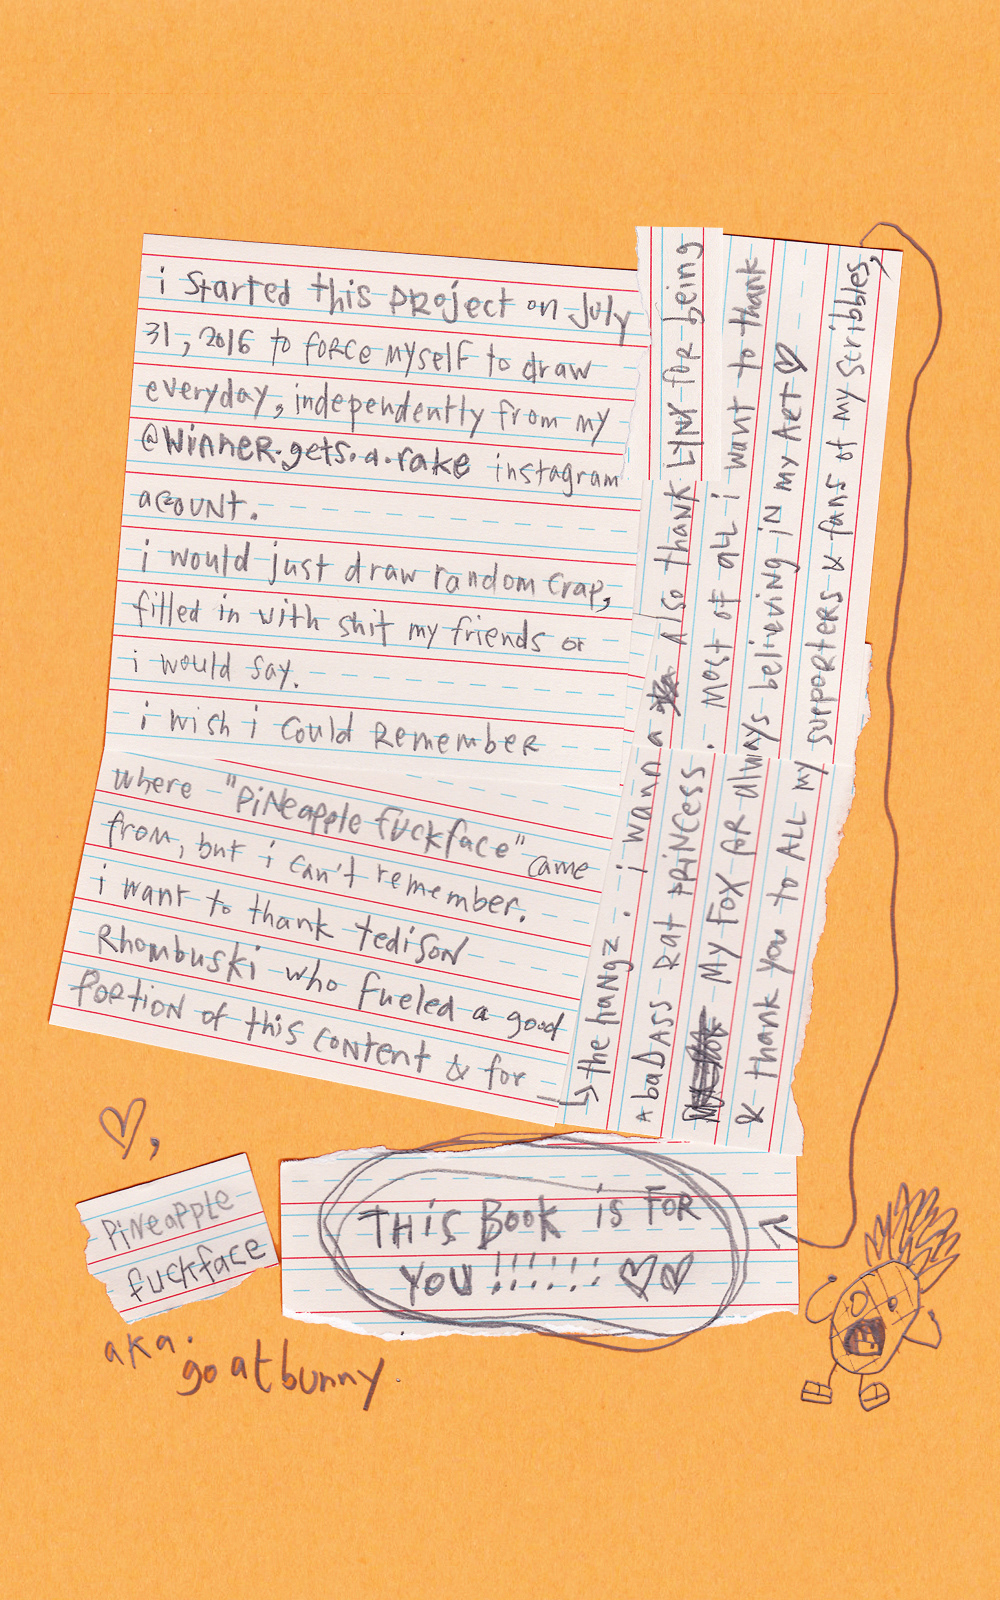 i started this project on July
31, 2016 to force myself to draw
everyday, independently from my
@winner.gets.a.rake instagram
acount.
i would just draw random crap,
filled in with shit my friends or
i would say.
i wish i could remember
where "pineapple fuckface" came
from, but i can't remember.
i want to thank tedison
Rhombuski who fueled a good
portion of this content & for
↳ the hangz. i wanna Also thank LYNX for being
A baDASS Rat PRiNCess. Most of all i want to thank
My Fox for always believing in my Art ♡
& thank you to ALL my supporters & fans of my scribbles,
THis Book is FOR
YOU !!!!!! ♡♡
♡,
Pineapple
fuckface
aka.
goatbunny.